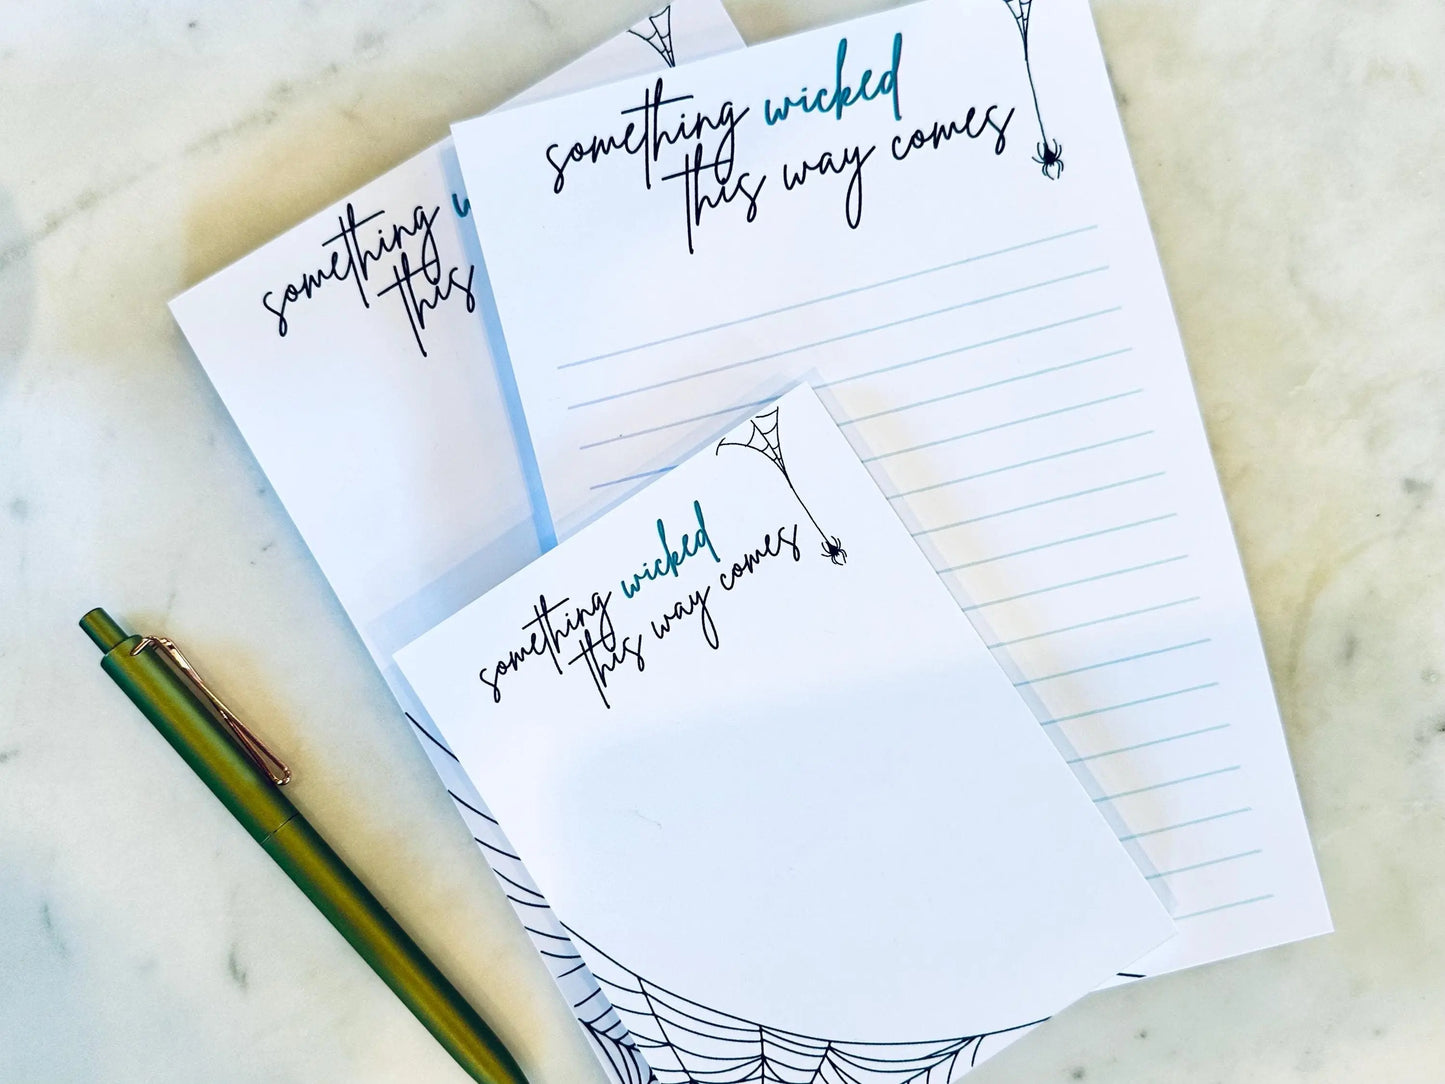 something wicked
this way comes
something w
this
something wicked
this way comes